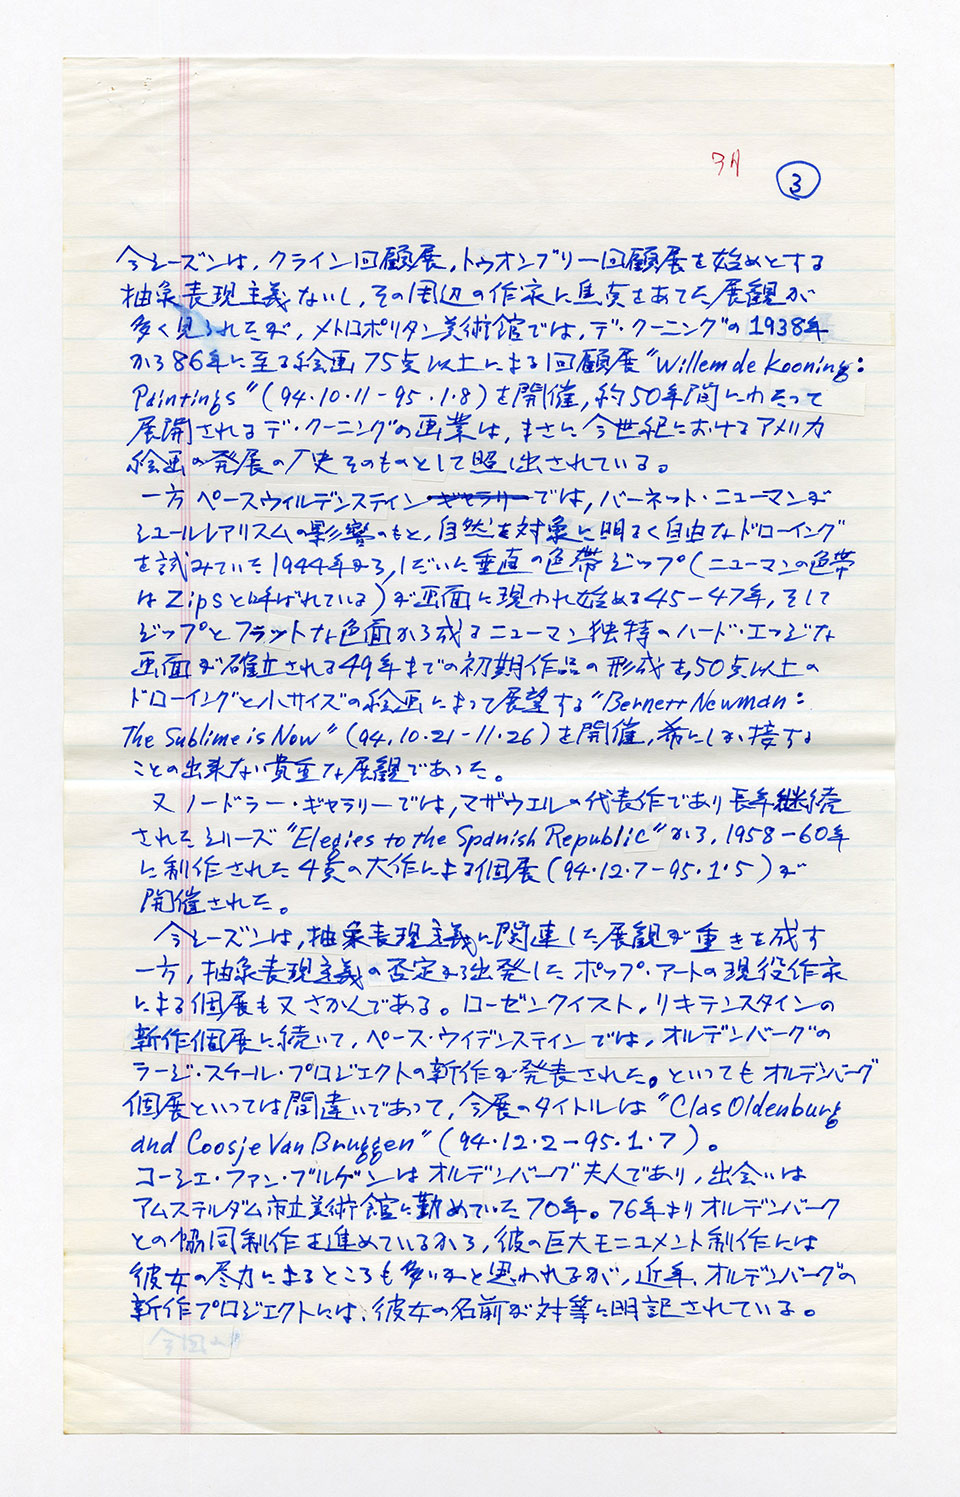 3月
3
今シーズンは,クライン回顧展,トゥオンブリー回顧展を始めとする
抽象表現主義ないし,その周辺の作家に焦点をあてた展観が
多く見られたが,メトロポリタン美術館では,デ・クーニングの1938年
から86年に至る絵画75点以上による回顧展“Willem de Kooning:
Paintings”(94.10.11-95.1.8)を開催,約50年間にわたって
展開されるデ・クーニングの画業は,まさに今世紀におけるアメリカ
絵画の発展の歴史そのものとして照し出されている。
一方ペースウィルデンスティンギャラリーでは,バーネット・ニューマンが
シュールレアリスムの影響のもと,自然を対象に明るく自由なドローイング
を試みていた1944年から,しだいに垂直の色帯ジップ(ニューマンの色帯
はZipsと呼ばれている)が画面に現われ始める45-47年,そして
ジップとフラットな色面から成るニューマン独特のハード・エッジな
画面が確立される49年までの初期作品の形成を50点以上の
ドローイングと小サイズの絵画によって展望する“Bernett Newman:
The Sublime is Now”(94.10.21-11.26)を開催,希にしか接する
ことの出来ない貴重な展観であった。
又ノードラー・ギャラリーでは,マザウエルの代表作であり長年継続
されたシリーズ“Elegies to the Spanish Republic”から,1958-60年
に制作された4点の大作による個展(94.12.7-95.1.5)が
開催された。
今シーズンは,抽象表現主義に関連した展観が重きを成す
一方,抽象表現主義の否定から出発したポップ・アートの現役作家
による個展も又さかんである。ローゼンクイスト,リキテンスタインの
新作個展に続いて,ペース・ウイデンスティンでは,オルデンバーグの
ラージ・スケール・プロジェクトの新作が発表された。といってもオルデンバーグ
個展といっては間違いであって,今展のタイトルは“Clas Oldenburg
and Coosje Van Bruggen”(94.12.2-95.1.7)。
コーシェ・ファン・ブルゲンはオルデンバーグ夫人であり,出会いは
アムステルダム市立美術館に勤めていた70年。76年よりオルデンバーク
との協同制作を進めているから,彼の巨大モニュメント制作には
彼女の尽力によるところも多いかと思われるが,近年,オルデンバーグの
新作プロジェクトには,彼女の名前が対等に明記されている。